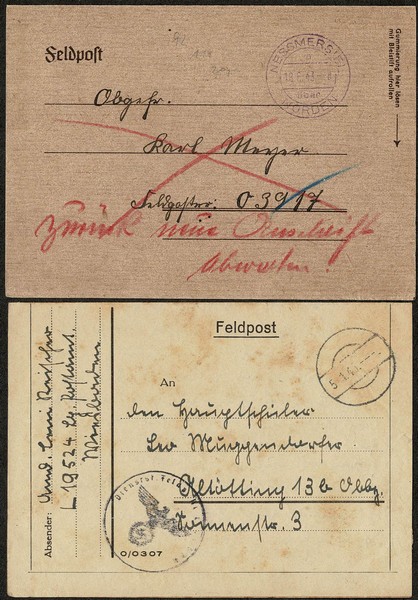 Feldpost
NESSMERSIEL
NORDEN
Gummierung hier lösen
mit Bleistift aufrollen
Obgefr.
Karl Meyer
Feldpostnr: 03917
zurück neue Anschrift
abwarten!
Feldpost
An
den Hauptschüler
Leo Muggendorfer
Altötting 13b Obb.
Sonnenstr. 3
Absender:
L 19524 Lg. Postamt
Wiesbaden
0/0307